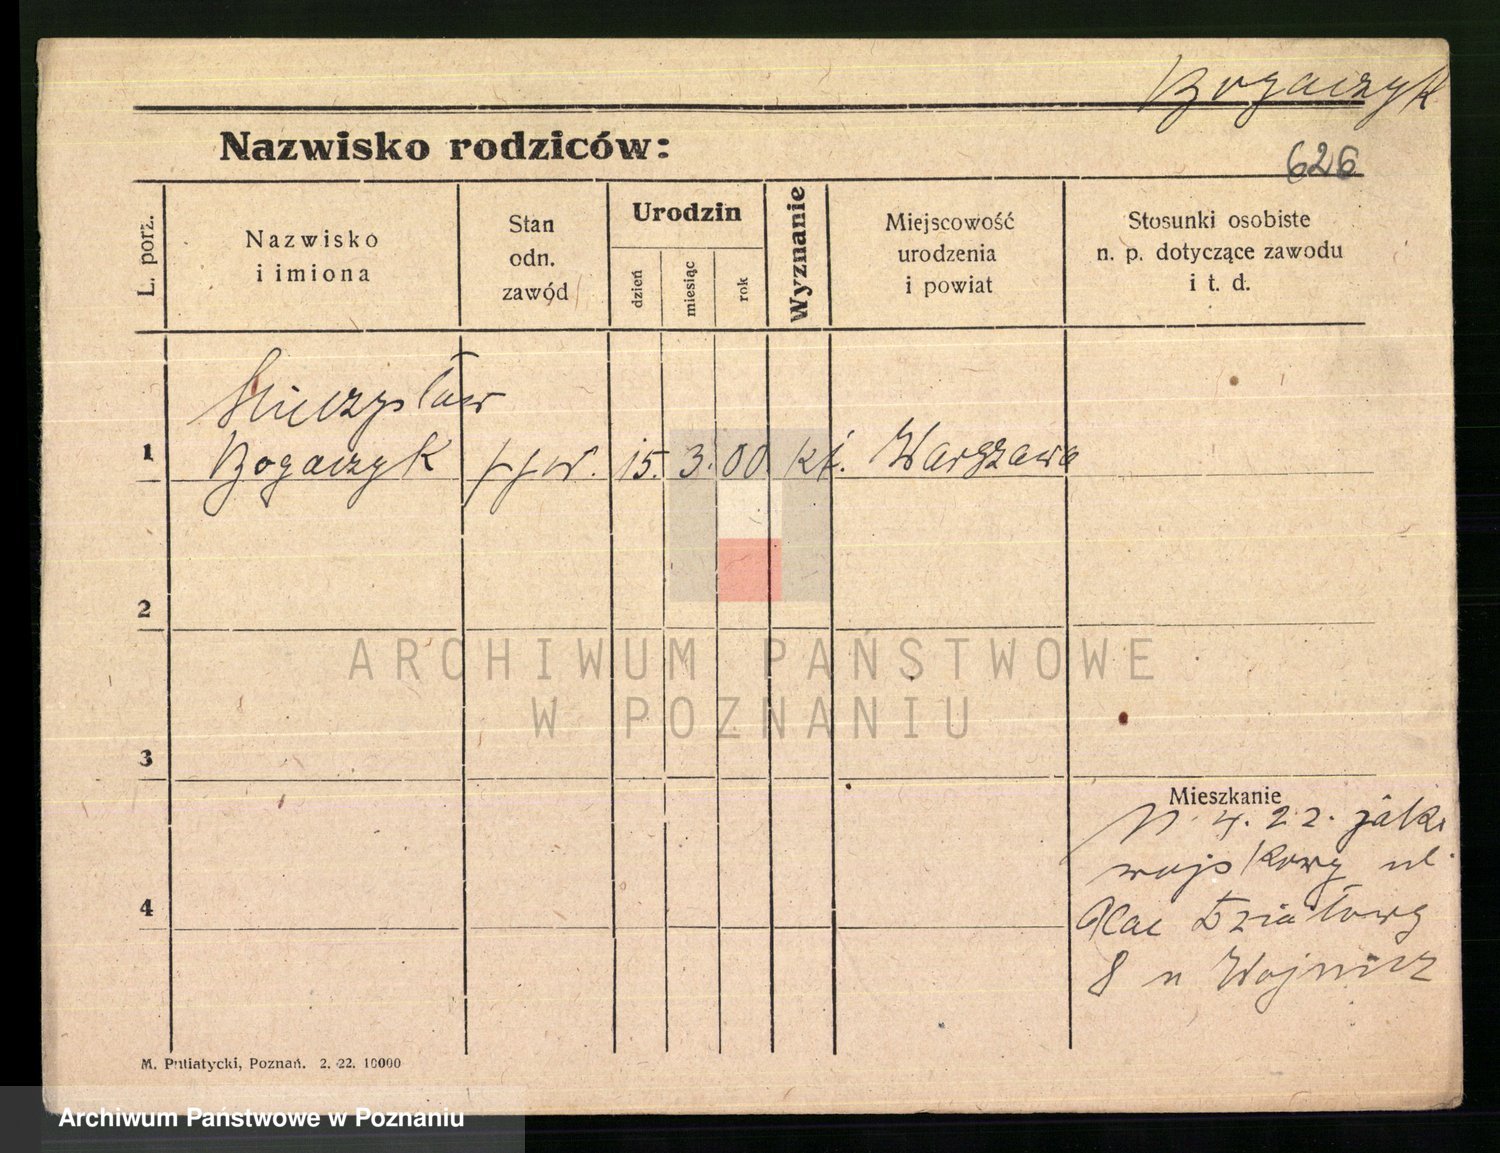 Bogaczyk
Nazwisko rodziców:
626
L. porz.
Nazwisko
i imiona
Stan
odn.
zawód
Urodzin
dzień
miesiąc
rok
Wyznanie
Miejscowość
urodzenia
i powiat
Stosunki osobiste
n. p. dotyczące zawodu
i t. d.
Mieczysław
1 Bogaczyk 15. 3. 00. kt. Warszawa
2
ARCHIWUM PAŃSTWOWE
W POZNANIU
3
Mieszkanie
4. 22. jako
wojskowy ul.
4
Plac Działowy
8 u Wojnicz
M. Putiatycki, Poznań. 2. 22. 10000
Archiwum Państwowe w Poznaniu